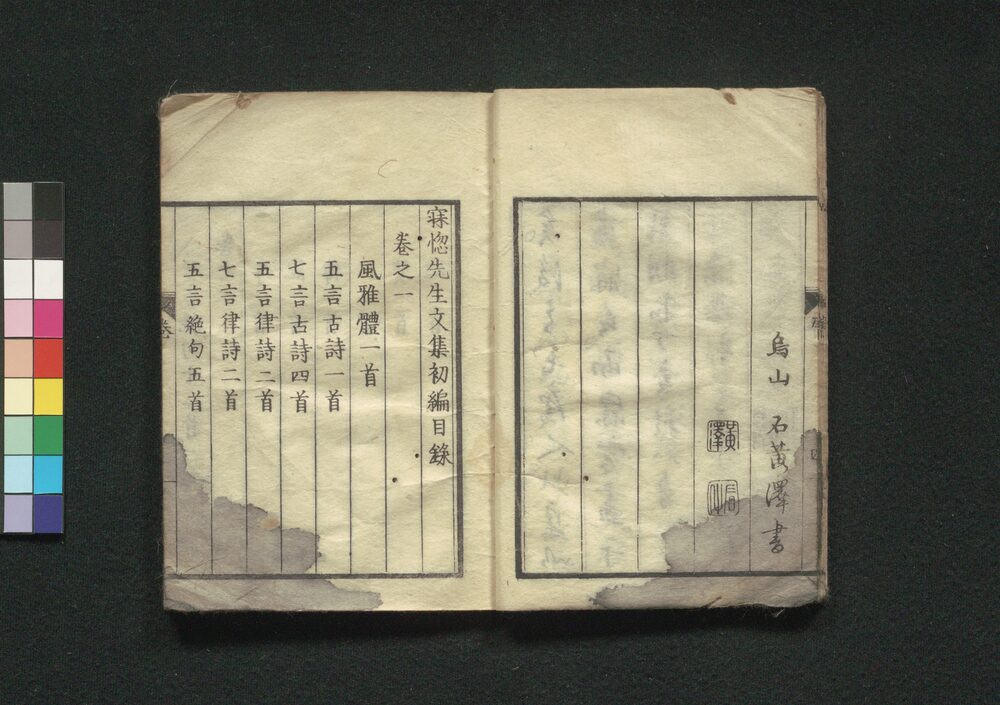 烏山 石黄澤書
寐惚先生文集初編目錄
巻之一
風雅體一首
五言古詩一首
七言古詩四首
五言律詩二首
七言律詩二首
五言絶句五首